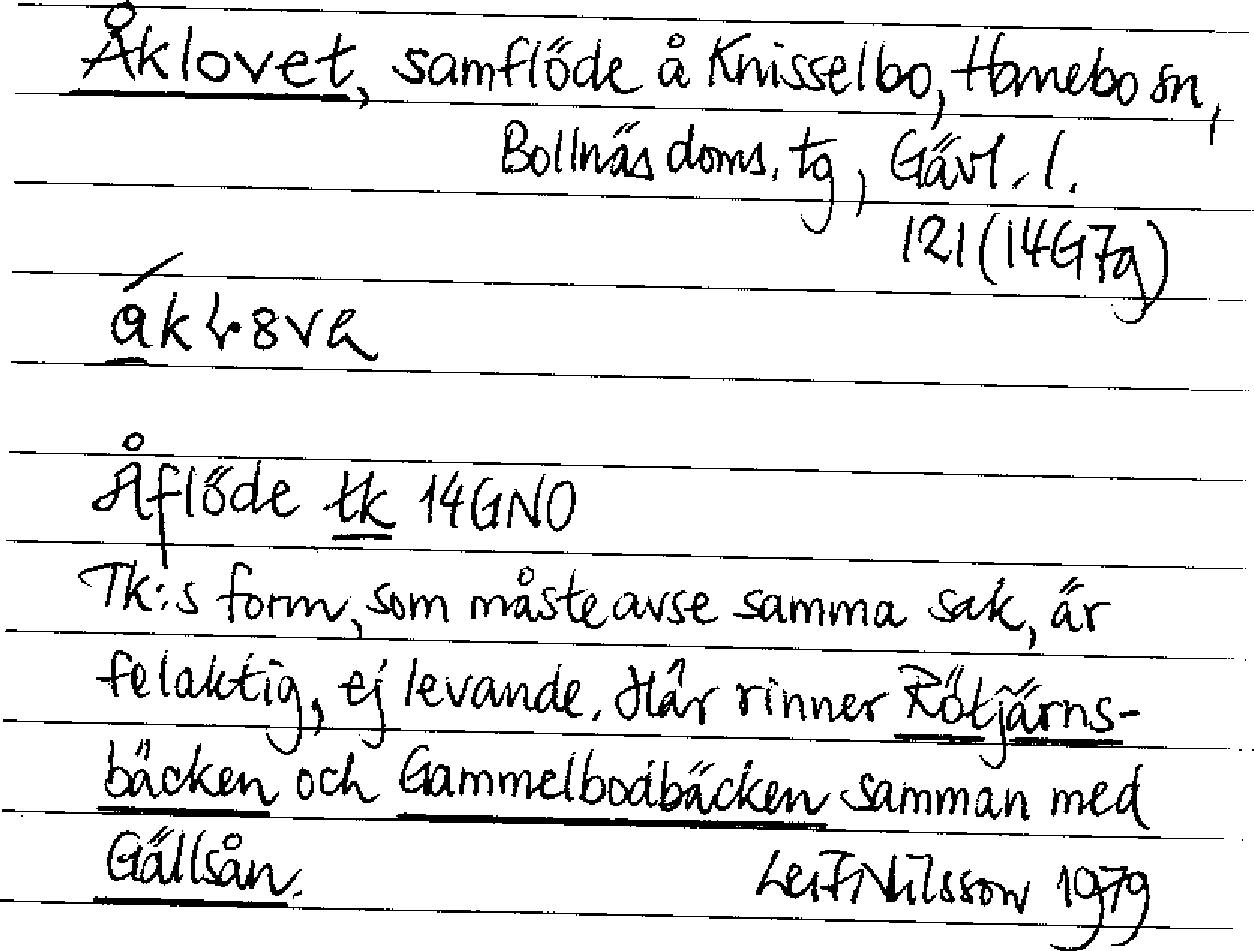 Åklovet, samflöde å Knisselbo, Hanebo sn,
Bollnäs doms. tg, Gävl. l.
121 (14G7g)
Åflöde tk 14GNO
Tk:s form, som måste avse samma sak, är
felaktig, ej levande. Här rinner Rötjärns-
bäcken och Gammelbodbäcken samman med
Gällsån.
Leif Nilsson 1979